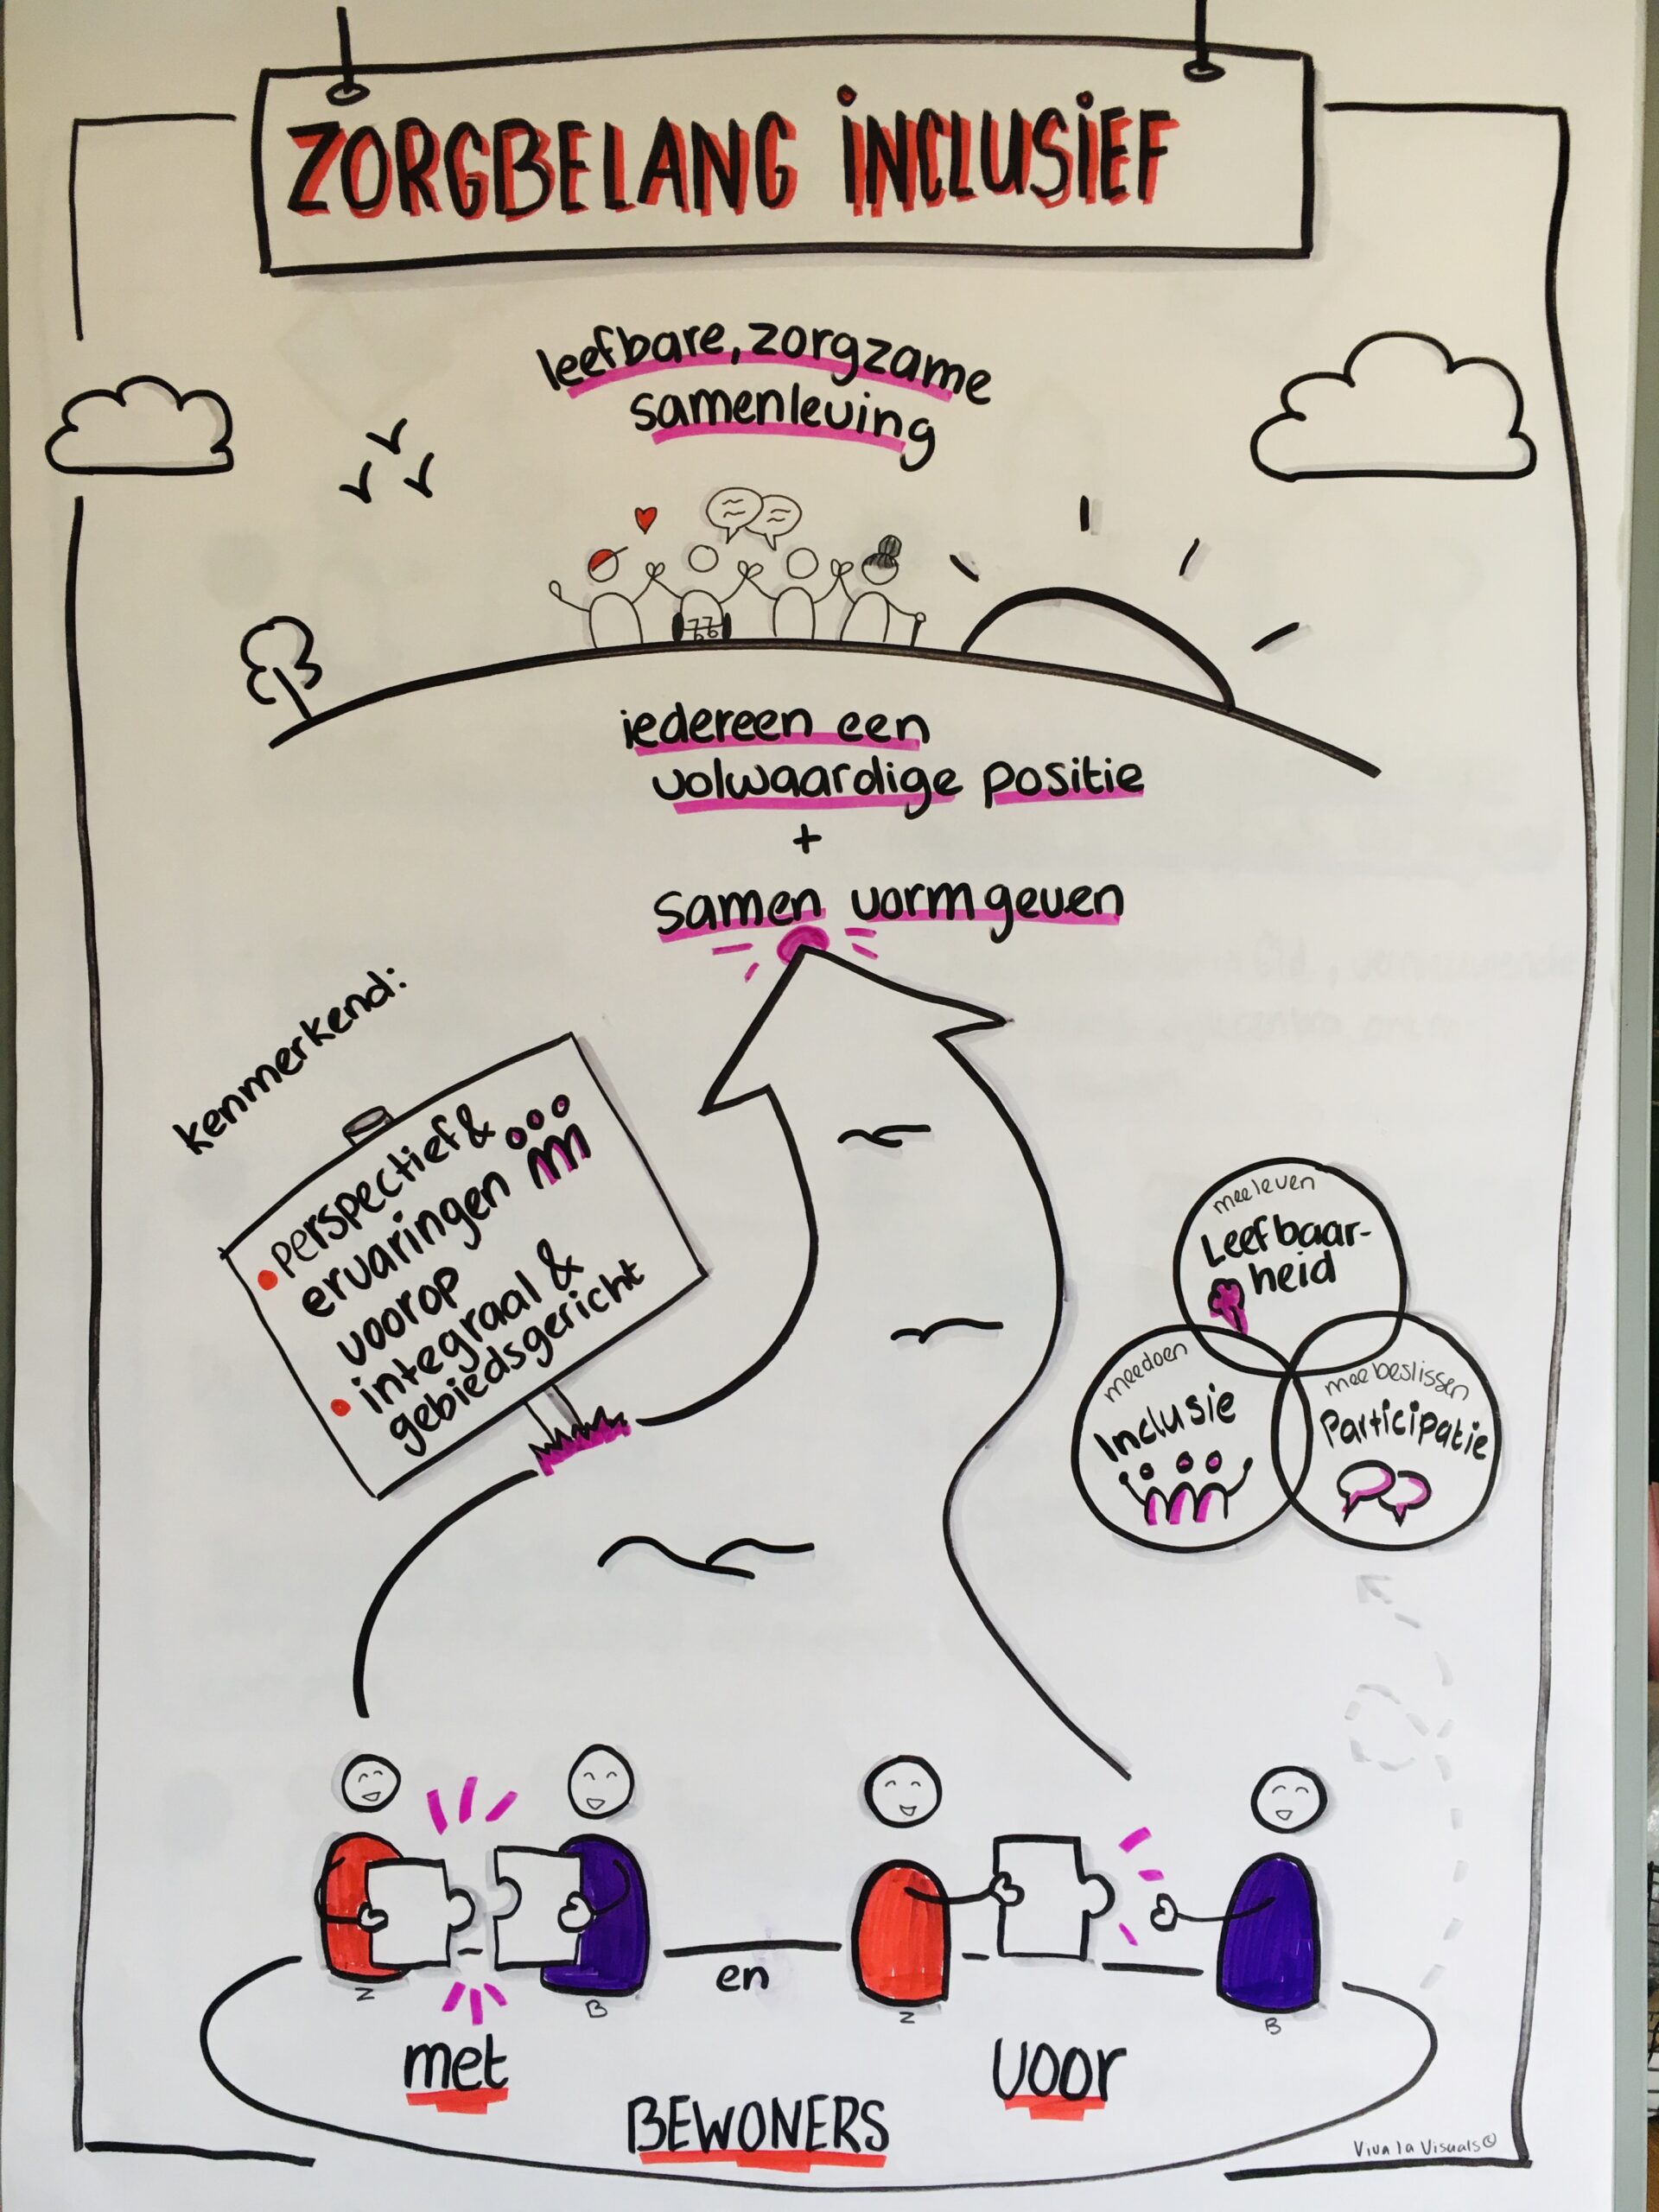 ZORGBELANG INCLUSIEF
leefbare, zorgzame
samenleving
iedereen een
volwaardige positie
+
samen vormgeven
kenmerkend:
• perspectief &
ervaringen
voorop
• integraal &
gebiedsgericht
meeleven
Leefbaar-
heid
meedoen
Inclusie
meebeslissen
Participatie
Z
B
en
Z
B
met
voor
BEWONERS
Viva la Visuals ©